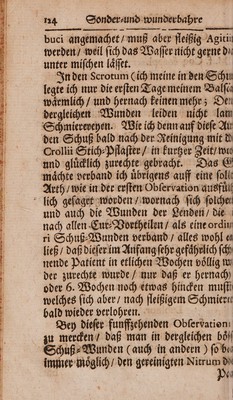 124 Sonder- und wunderbahre
buci angemachet / muß aber fleißig Agitir
werden / weil sich das Wasser nicht gerne da
unter mischen lässet.
In den Scrotum (ich meine in den Schu
legte ich nur die ersten Tage meinem Balsa
wärmlich / und hernach keinen mehr; Den
dergleichen Wunden leiden nicht lan
Schmierereyen. Wie ich denn auf diese Ar
den Schuß bald nach der Reinigung mit d
Crollii Stich-Pflaster / in kurtzer Zeit / wo
und glücklich zurechte gebracht. Das G
mächte verband ich übrigens auff eine solc
Arth / wie in der ersten Observation ausfüh
lich gesaget worden / wornach sich solchen
und auch die Wunden der Lenden / die
nach allen Cur-Vortheilen / als eine ordin
ri Schuß-Wunden verband / alles wohl a
ließ / daß dieser im Anfang sehr gefährlich schei
nende Patient in etlichen Wochen völlig wi
der zurechte wurde / nur daß er hernach
oder 6. Wochen noch etwas hincken must
welches sich aber / nach fleißigem Schmieren
bald wieder verlohren.
Bey dieser funffzehenden Observation
zu mercken / daß man in dergleichen bös
Schuß-Wunden (auch in andern) so bal
immer möglich / den gereinigten Nitrum de